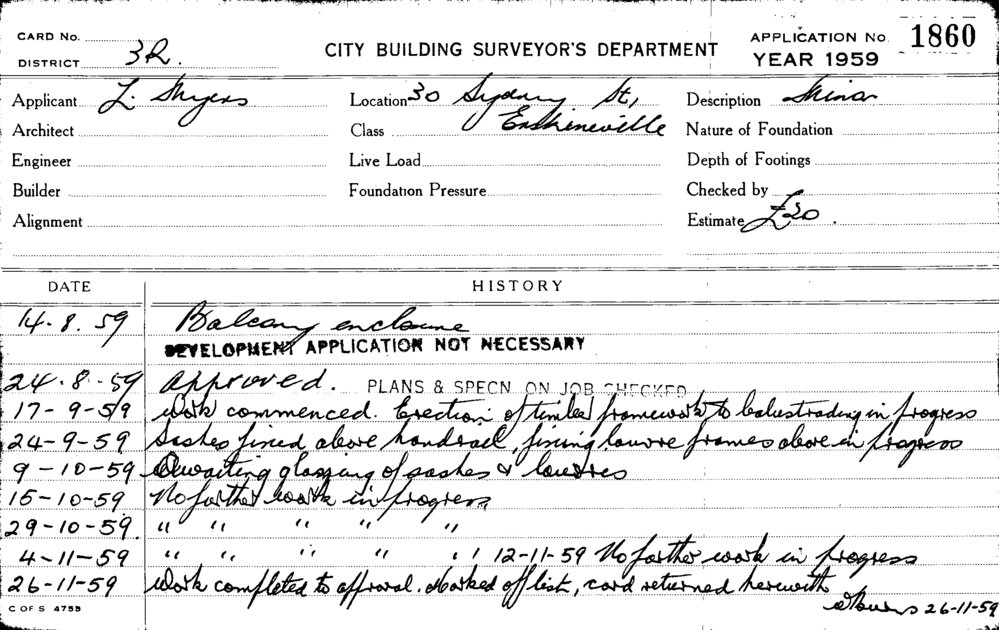 CARD No.
DISTRICT 3R.
CITY BUILDING SURVEYOR'S DEPARTMENT
APPLICATION No. 1860
YEAR 1959
Applicant L. Location 30 Sydney St, Description Minor
Architect Class Erskineville Nature of Foundation
Engineer Live Load Depth of Footings
Builder Foundation Pressure Checked by
Alignment Estimate £20.
DATE HISTORY
14.8.59 Balcony enclosure
DEVELOPMENT APPLICATION NOT NECESSARY
24.8.59 Approved. PLANS & SPECN ON JOB CHECKED
17-9-59 Work commenced. Erection of timber framework to balustrading in progress
24-9-59 Sashes fixed above handrail, fixing louvre frames above in progress
9-10-59 Awaiting glazing of sashes & louvres
15-10-59 No further work in progress
29-10-59. " " " " "
4-11-59 " " " " " 12-11-59 No further work in progress
26-11-59 Work completed to approval. Marked off list, card returned herewith
26-11-59
C OF S 4755